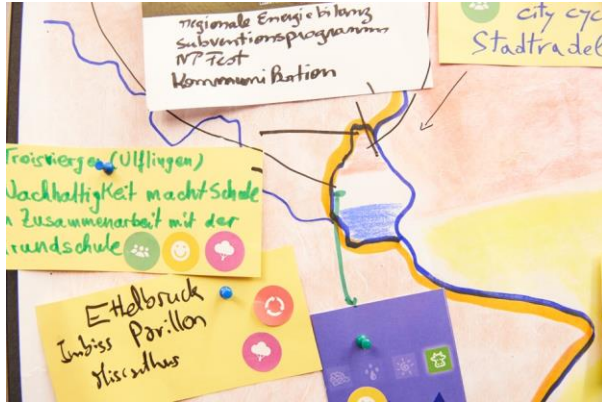 regionale Energiebilanz
Subventionsprogramm
NP Fest
Kommunikation
city cyc
Stadtradel
Troisvierges (Ulflingen)
Nachhaltigkeit macht Schule
n Zusammenarbeit mit der
rundschule
Ettelbruck
Imbiss Pavillon